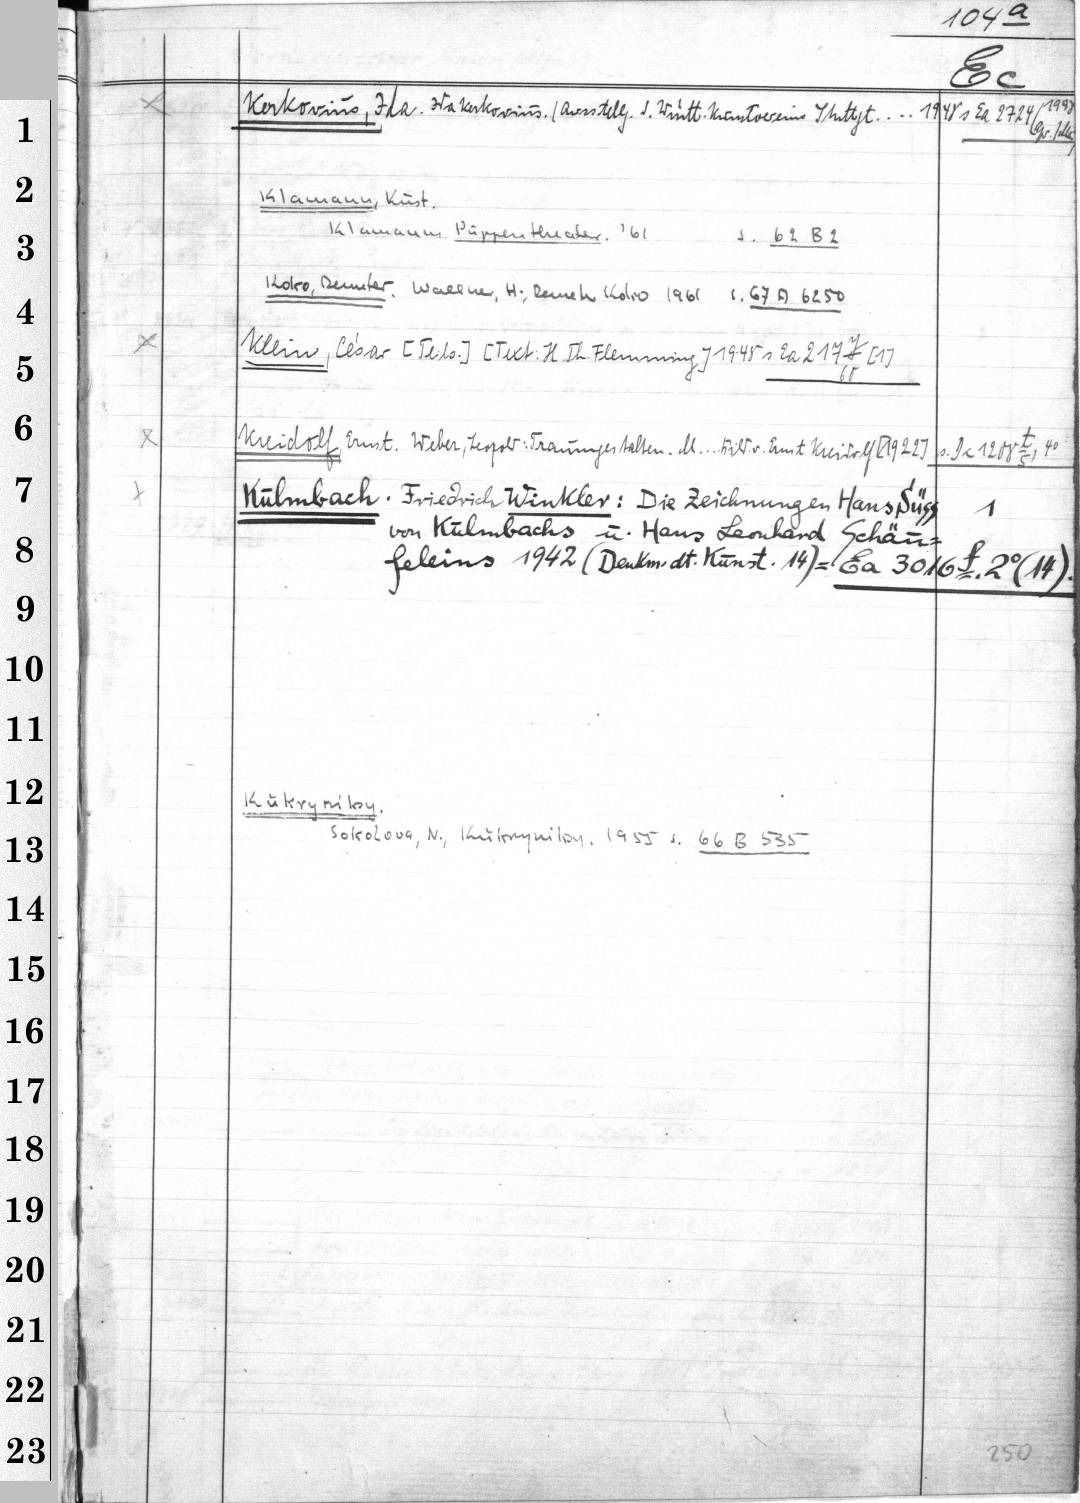 104a
Ec
1
Kerkovius, Ida. Ida Kerkovius. (Ausstellg. d. Württ. Kunstvereins Stuttgt. .... 1948 s Ea 2724
2
Klamann, Kurt.
3
Klamanns Puppentheater. '61 s. 62 B 2
4
Koko, Demeter. Wallner, H.; Demeter Koko 1961 s. 67 A 6250
5
Klein, César [Teils.] [Text: H. Th. Flemming] 1945 s Ea 217 [1]
6
Kreidolf, Ernst. Weber, Leopold: Traumgestalten. M... Bild v. Ernst Kreidolf [1922] 4°
7
Kulmbach. Friedrich Winkler: Die Zeichnungen Hans Süss 1
8
von Kulmbachs u. Hans Leonhard Schäu=
feleins 1942 (Denkm. dt. Kunst. 14) = Ea 3016 f. 2° (14).
9
10
11
12
Kukryniksy.
13
Sokolova, N., Kukryniksy. 1955 s. 66 B 535
14
15
16
17
18
19
20
21
22
23
250